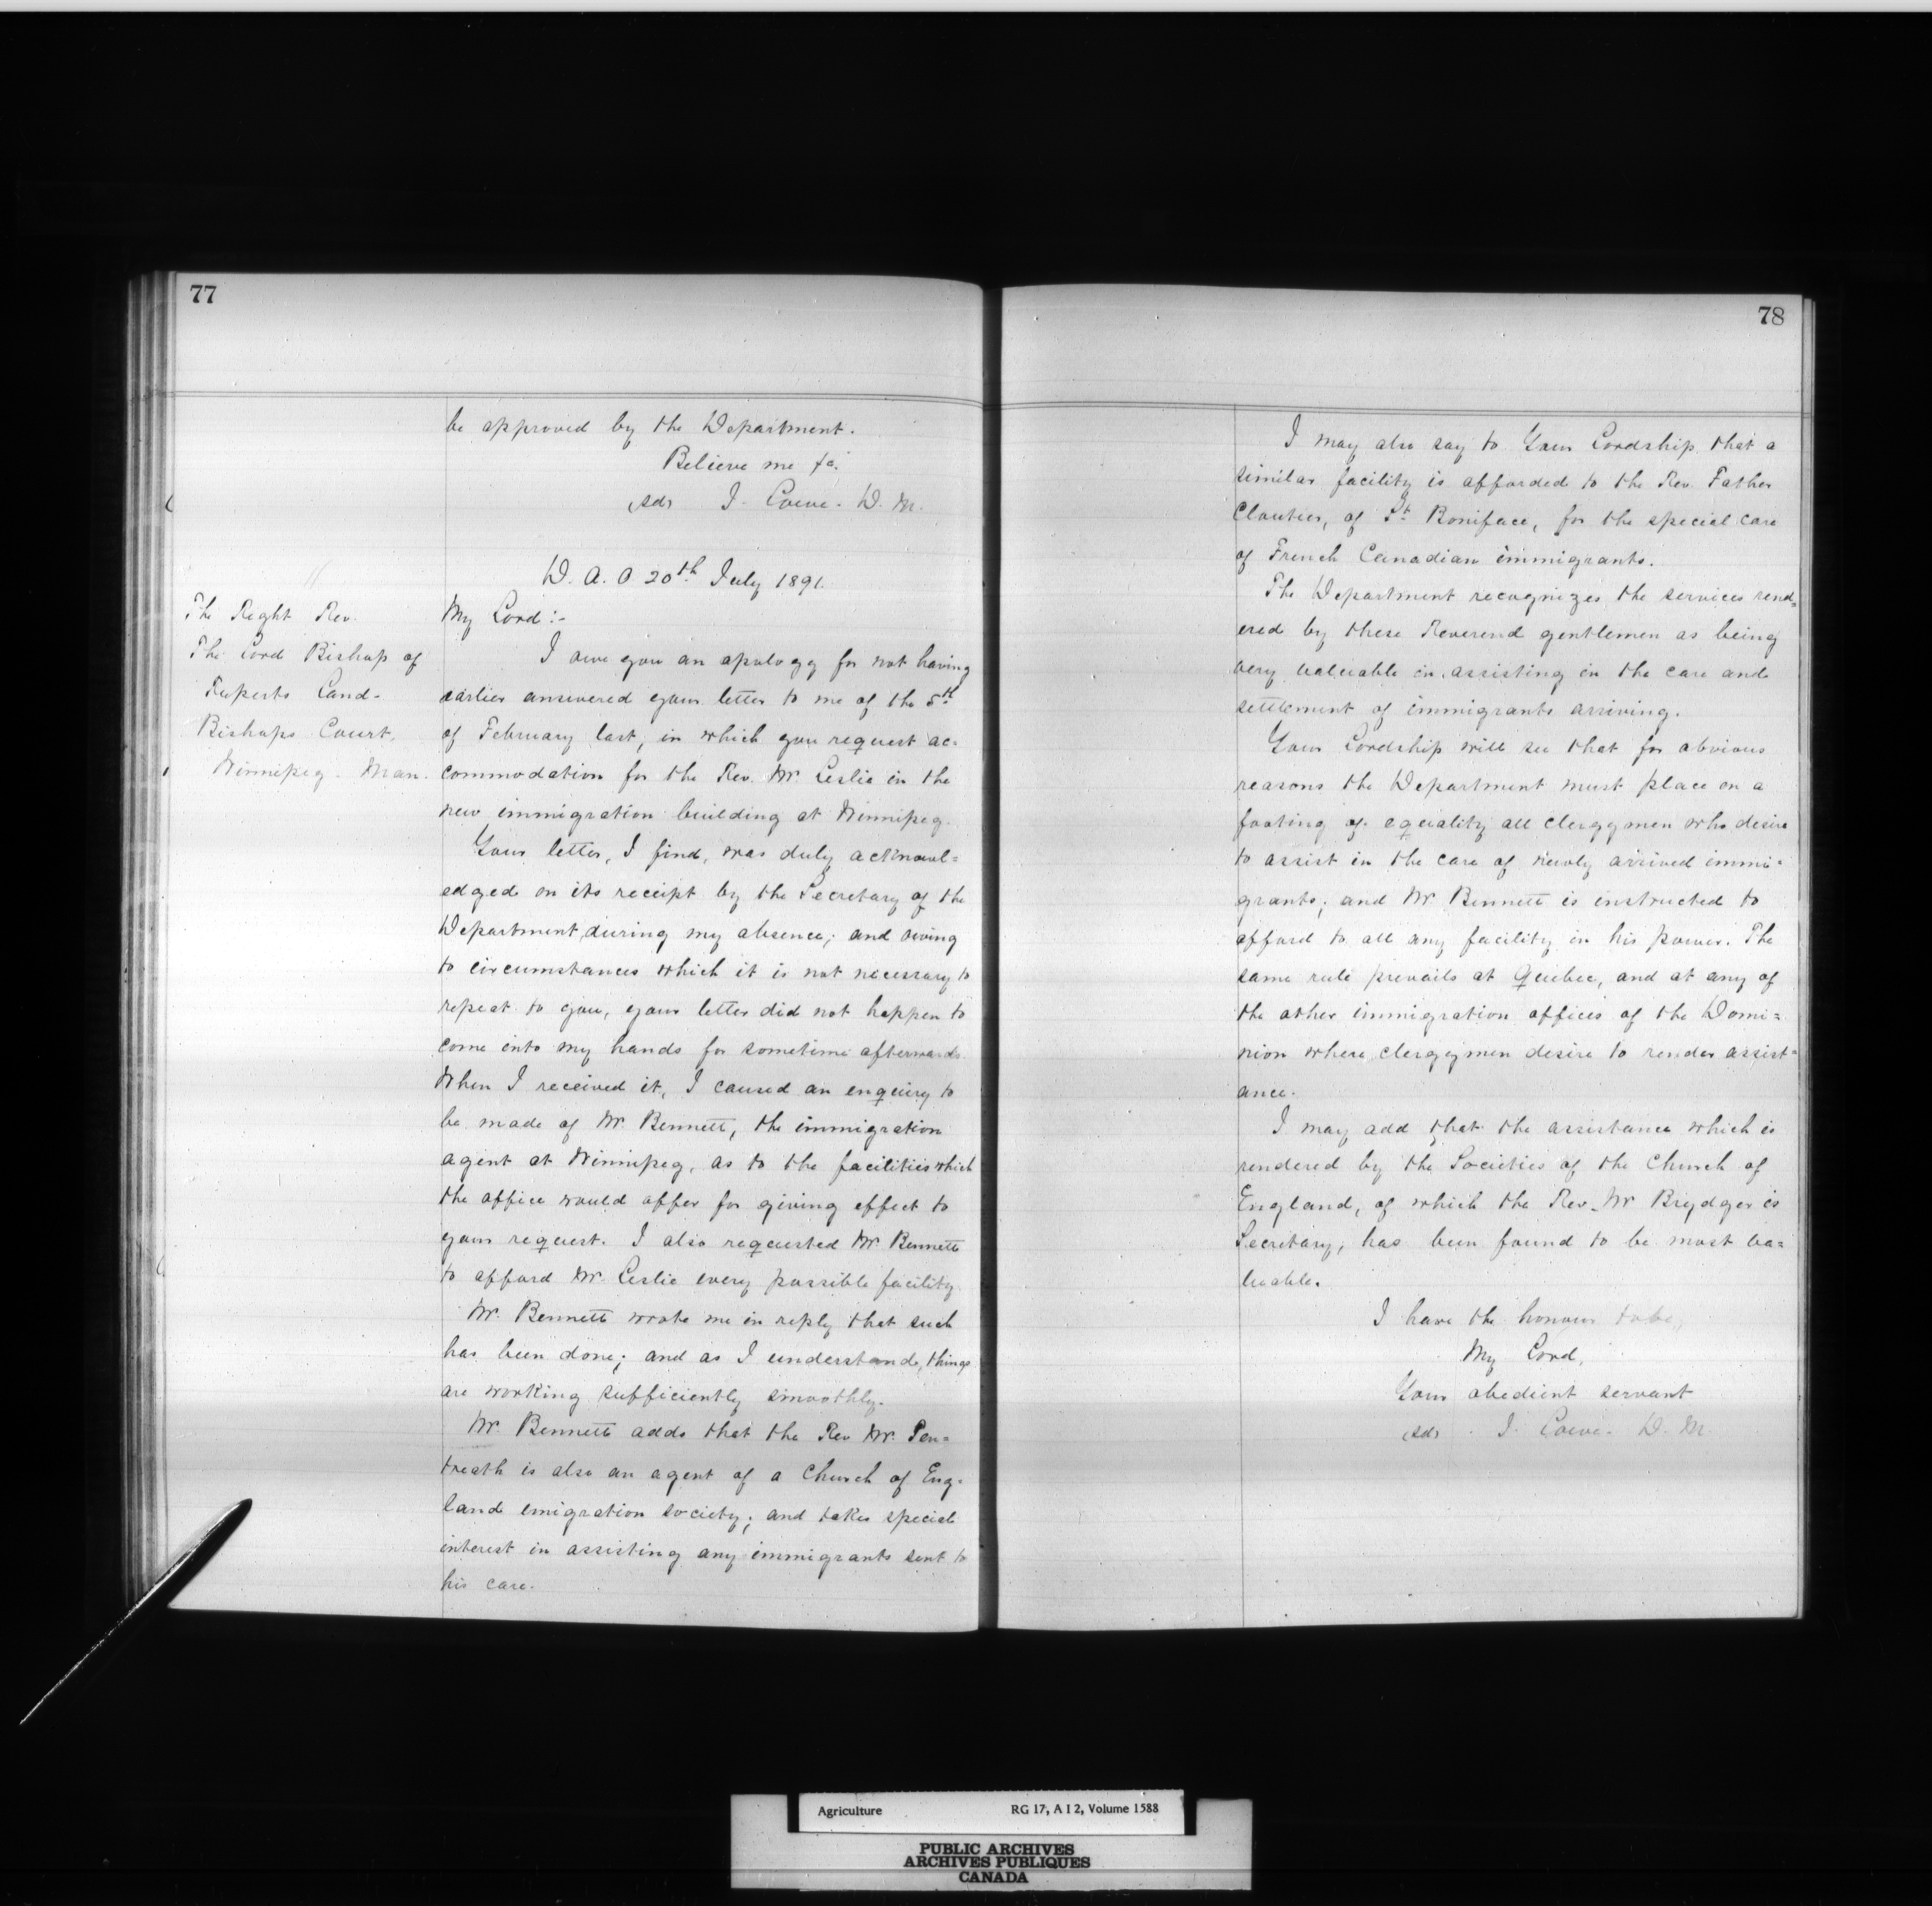 77
be approved by the Department.
Believe me &c.
(sd) J. Lowe. D. M.
D. A. O 20th July 1891.
The Right Rev.
The Lord Bishop of
Ruperts Land.
Bishops Court.
Winnipeg. Man.
My Lord:-
I owe you an apology for not having
earlier answered your letter to me of the 5th
of February last, in which you request ac=
commodation for the Rev. Mr Leslie in the
new immigration building at Winnipeg.
Your letter, I find, was duly acknowl=
edged on its receipt by the Secretary of the
Department, during my absence; and owing
to circumstances which it is not necessary to
repeat to you, your letter did not happen to
come into my hands for sometime afterwards.
When I received it, I caused an enquiry to
be made of Mr Bennett, the immigration
agent at Winnipeg, as to the facilities which
the office would offer for giving effect to
your request. I also requested Mr Bennett
to afford Mr. Leslie every possible facility.
Mr. Bennett wrote me in reply that such
has been done; and as I understand, things
are working sufficiently smoothly.
Mr. Bennett adds that the Rev Mr. Pen=
treath is also an agent of a Church of Eng=
land emigration society; and takes special
interest in assisting any immigrants sent to
his care.
78
I may also say to Your Lordship that a
similar facility is afforded to the Rev. Father
Cloutier, of St Boniface, for the special care
of French Canadian immigrants.
The Department recognizes the services rend=
ered by these Reverend gentlemen as being
very valuable in assisting in the care and
settlement of immigrants arriving.
Your Lordship will see that for obvious
reasons the Department must place on a
footing of equality all clergymen who desire
to assist in the care of newly arrived immi=
grants; and Mr Bennett is instructed to
afford to all any facility in his power. The
same rule prevails at Quebec, and at any of
the other immigration offices of the Domi=
nion where clergymen desire to render assist=
ance.
I may add that the assistance which is
rendered by the Societies of the Church of
England, of which the Rev. Mr Brydges is
Secretary, has been found to be most va=
luable.
I have the honour to be,
My Lord,
Your obedient servant
(sd) J. Lowe. D. M.
Agriculture RG 17, A I 2, Volume 1588
PUBLIC ARCHIVES
ARCHIVES PUBLIQUES
CANADA